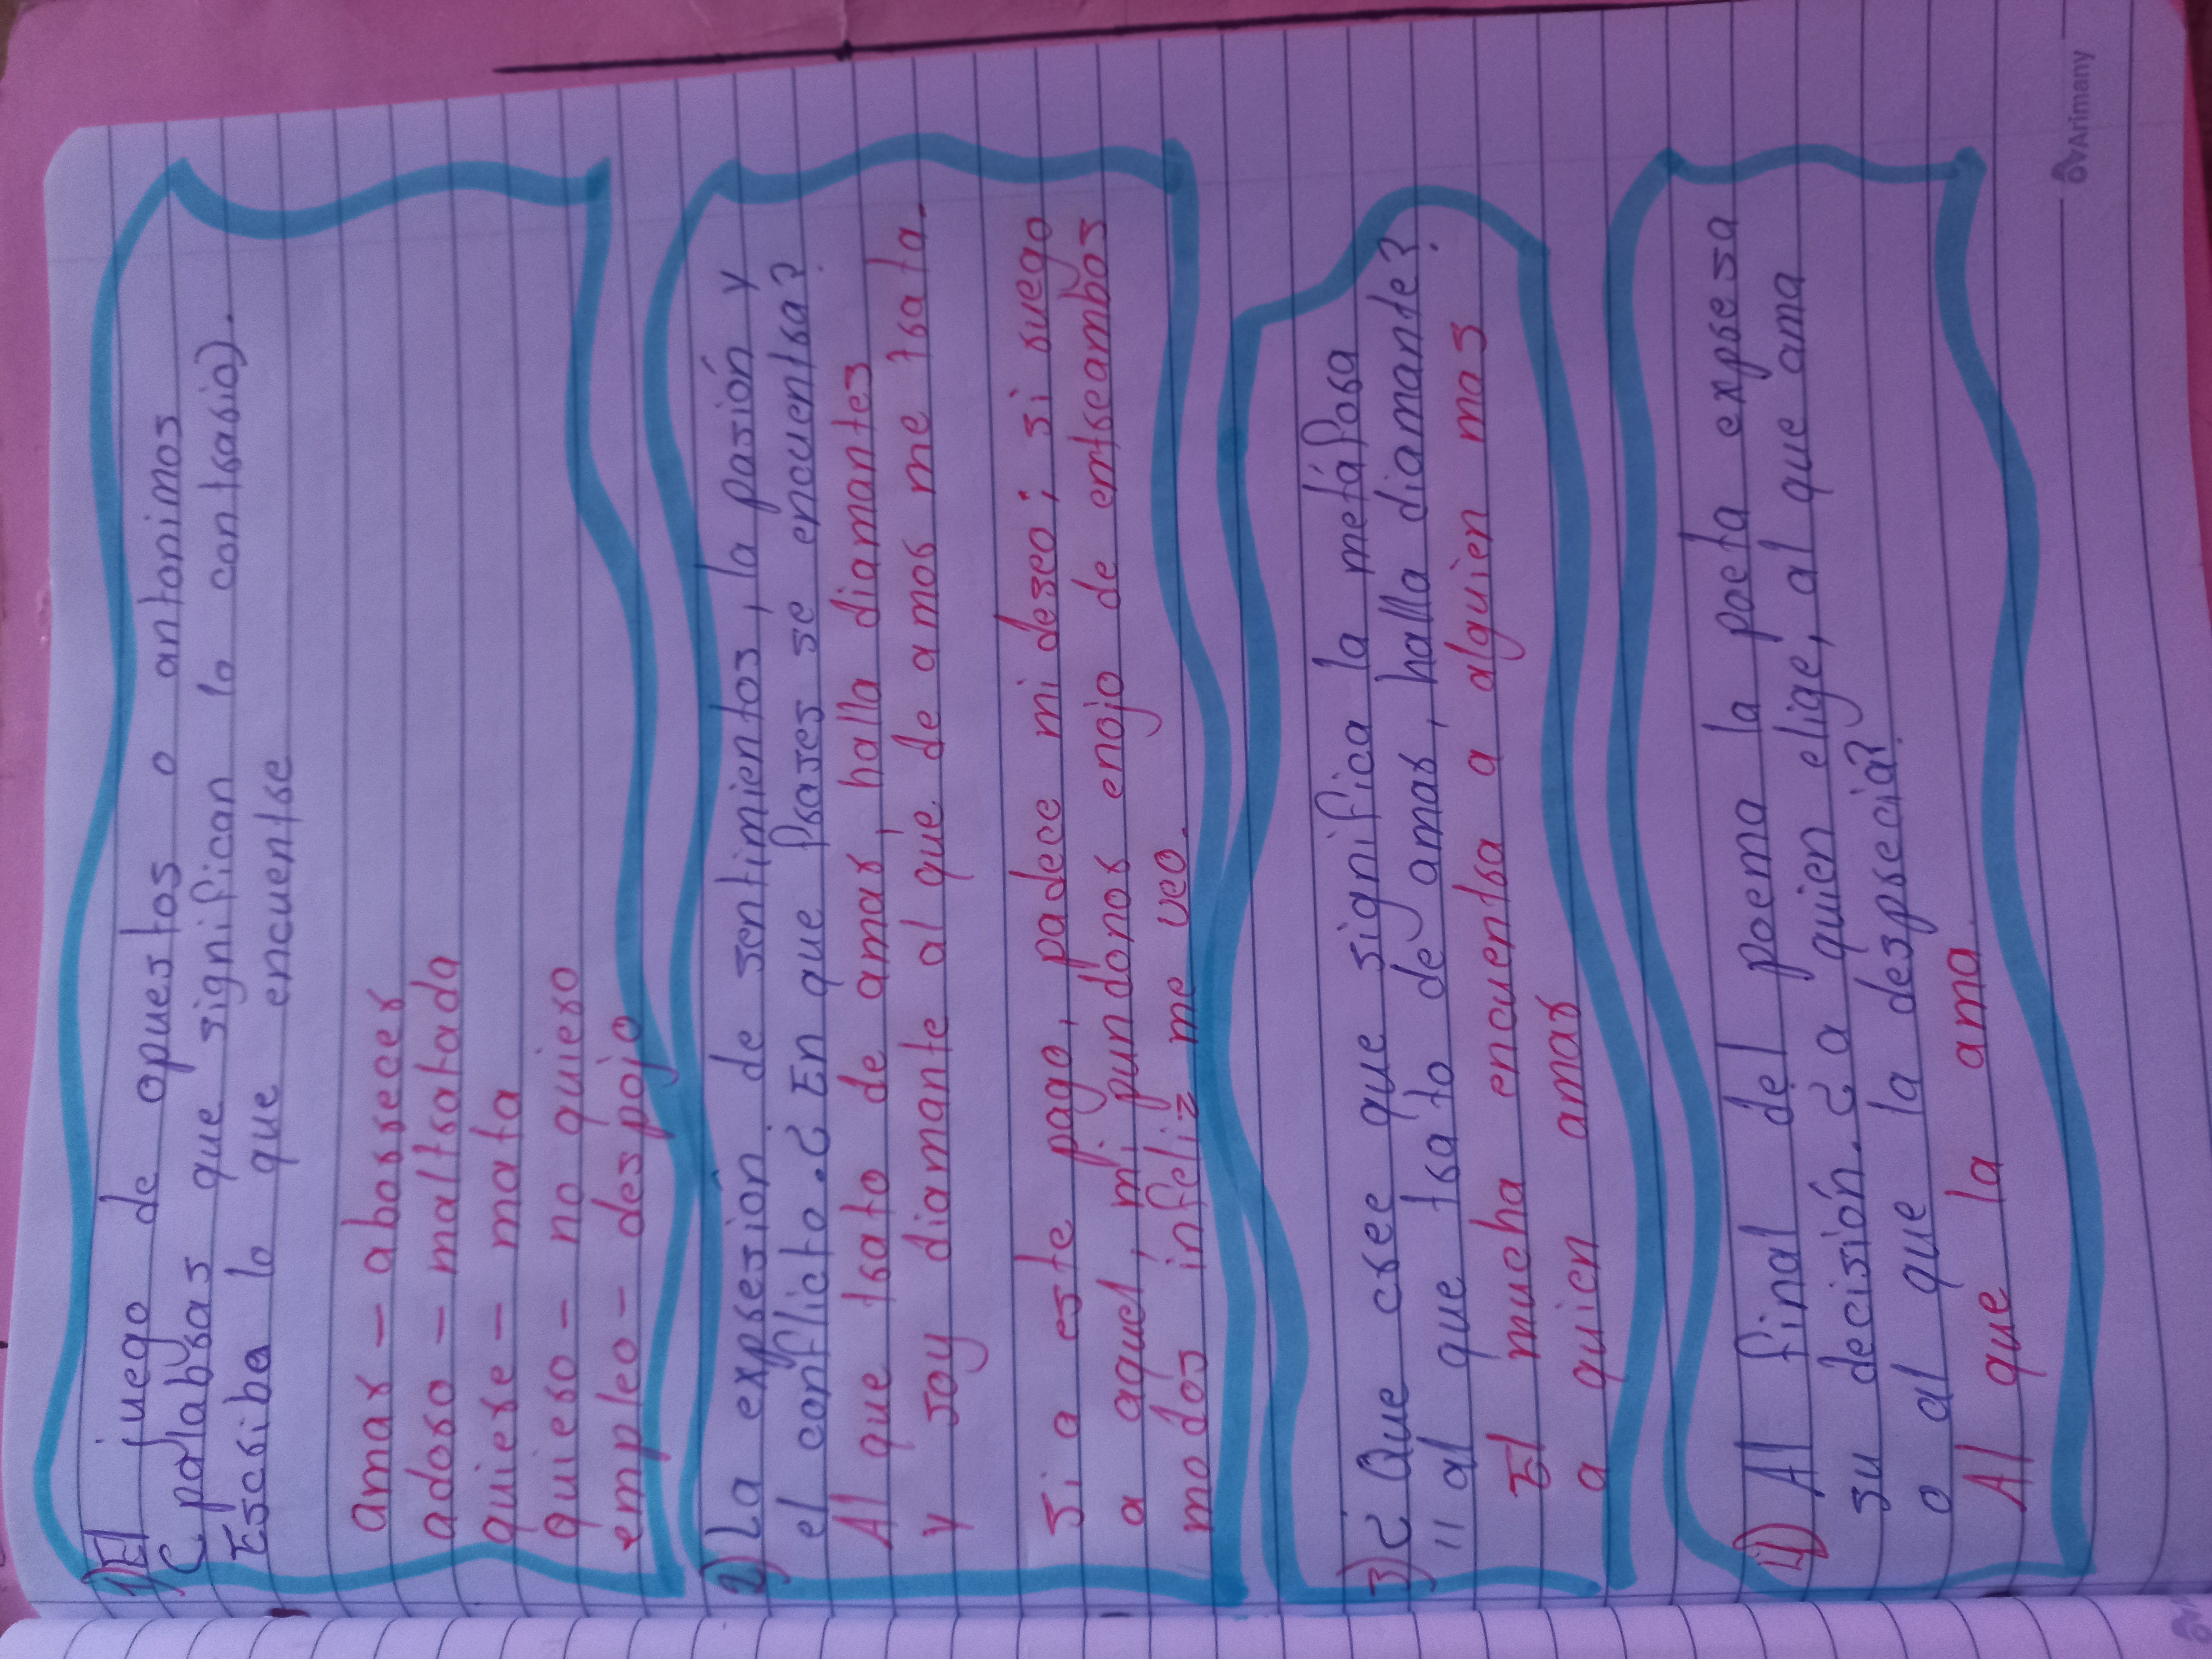 1) El juego de opuestos o antonimos
( palabras que significan lo contrario).
Escriba lo que encuentre
amar - aborrecer
adoro - maltratada
quiere - mata
quiero - no quiero
empleo - despojo
2) La expresión de sentimientos, la pasión y
el conflicto. ¿ En que frases se encuentra?
Al que trato de amar, halla diamantes
y soy diamante al que de amor me trata.
Si a este pago, padece mi deseo; si ruego
a aquel, mi pundonor enojo de entreambos
modos infeliz me veo.
3) ¿ Que cree que significa la metáfora
" al que trato de amar, halla diamante?
El mucha encuentra a alguien mas
a quien amar
4) Al final del poema la poeta expresa
su decisión. ¿ a quien elige, al que ama
o al que la desprecia?
Al que la ama
Arimany